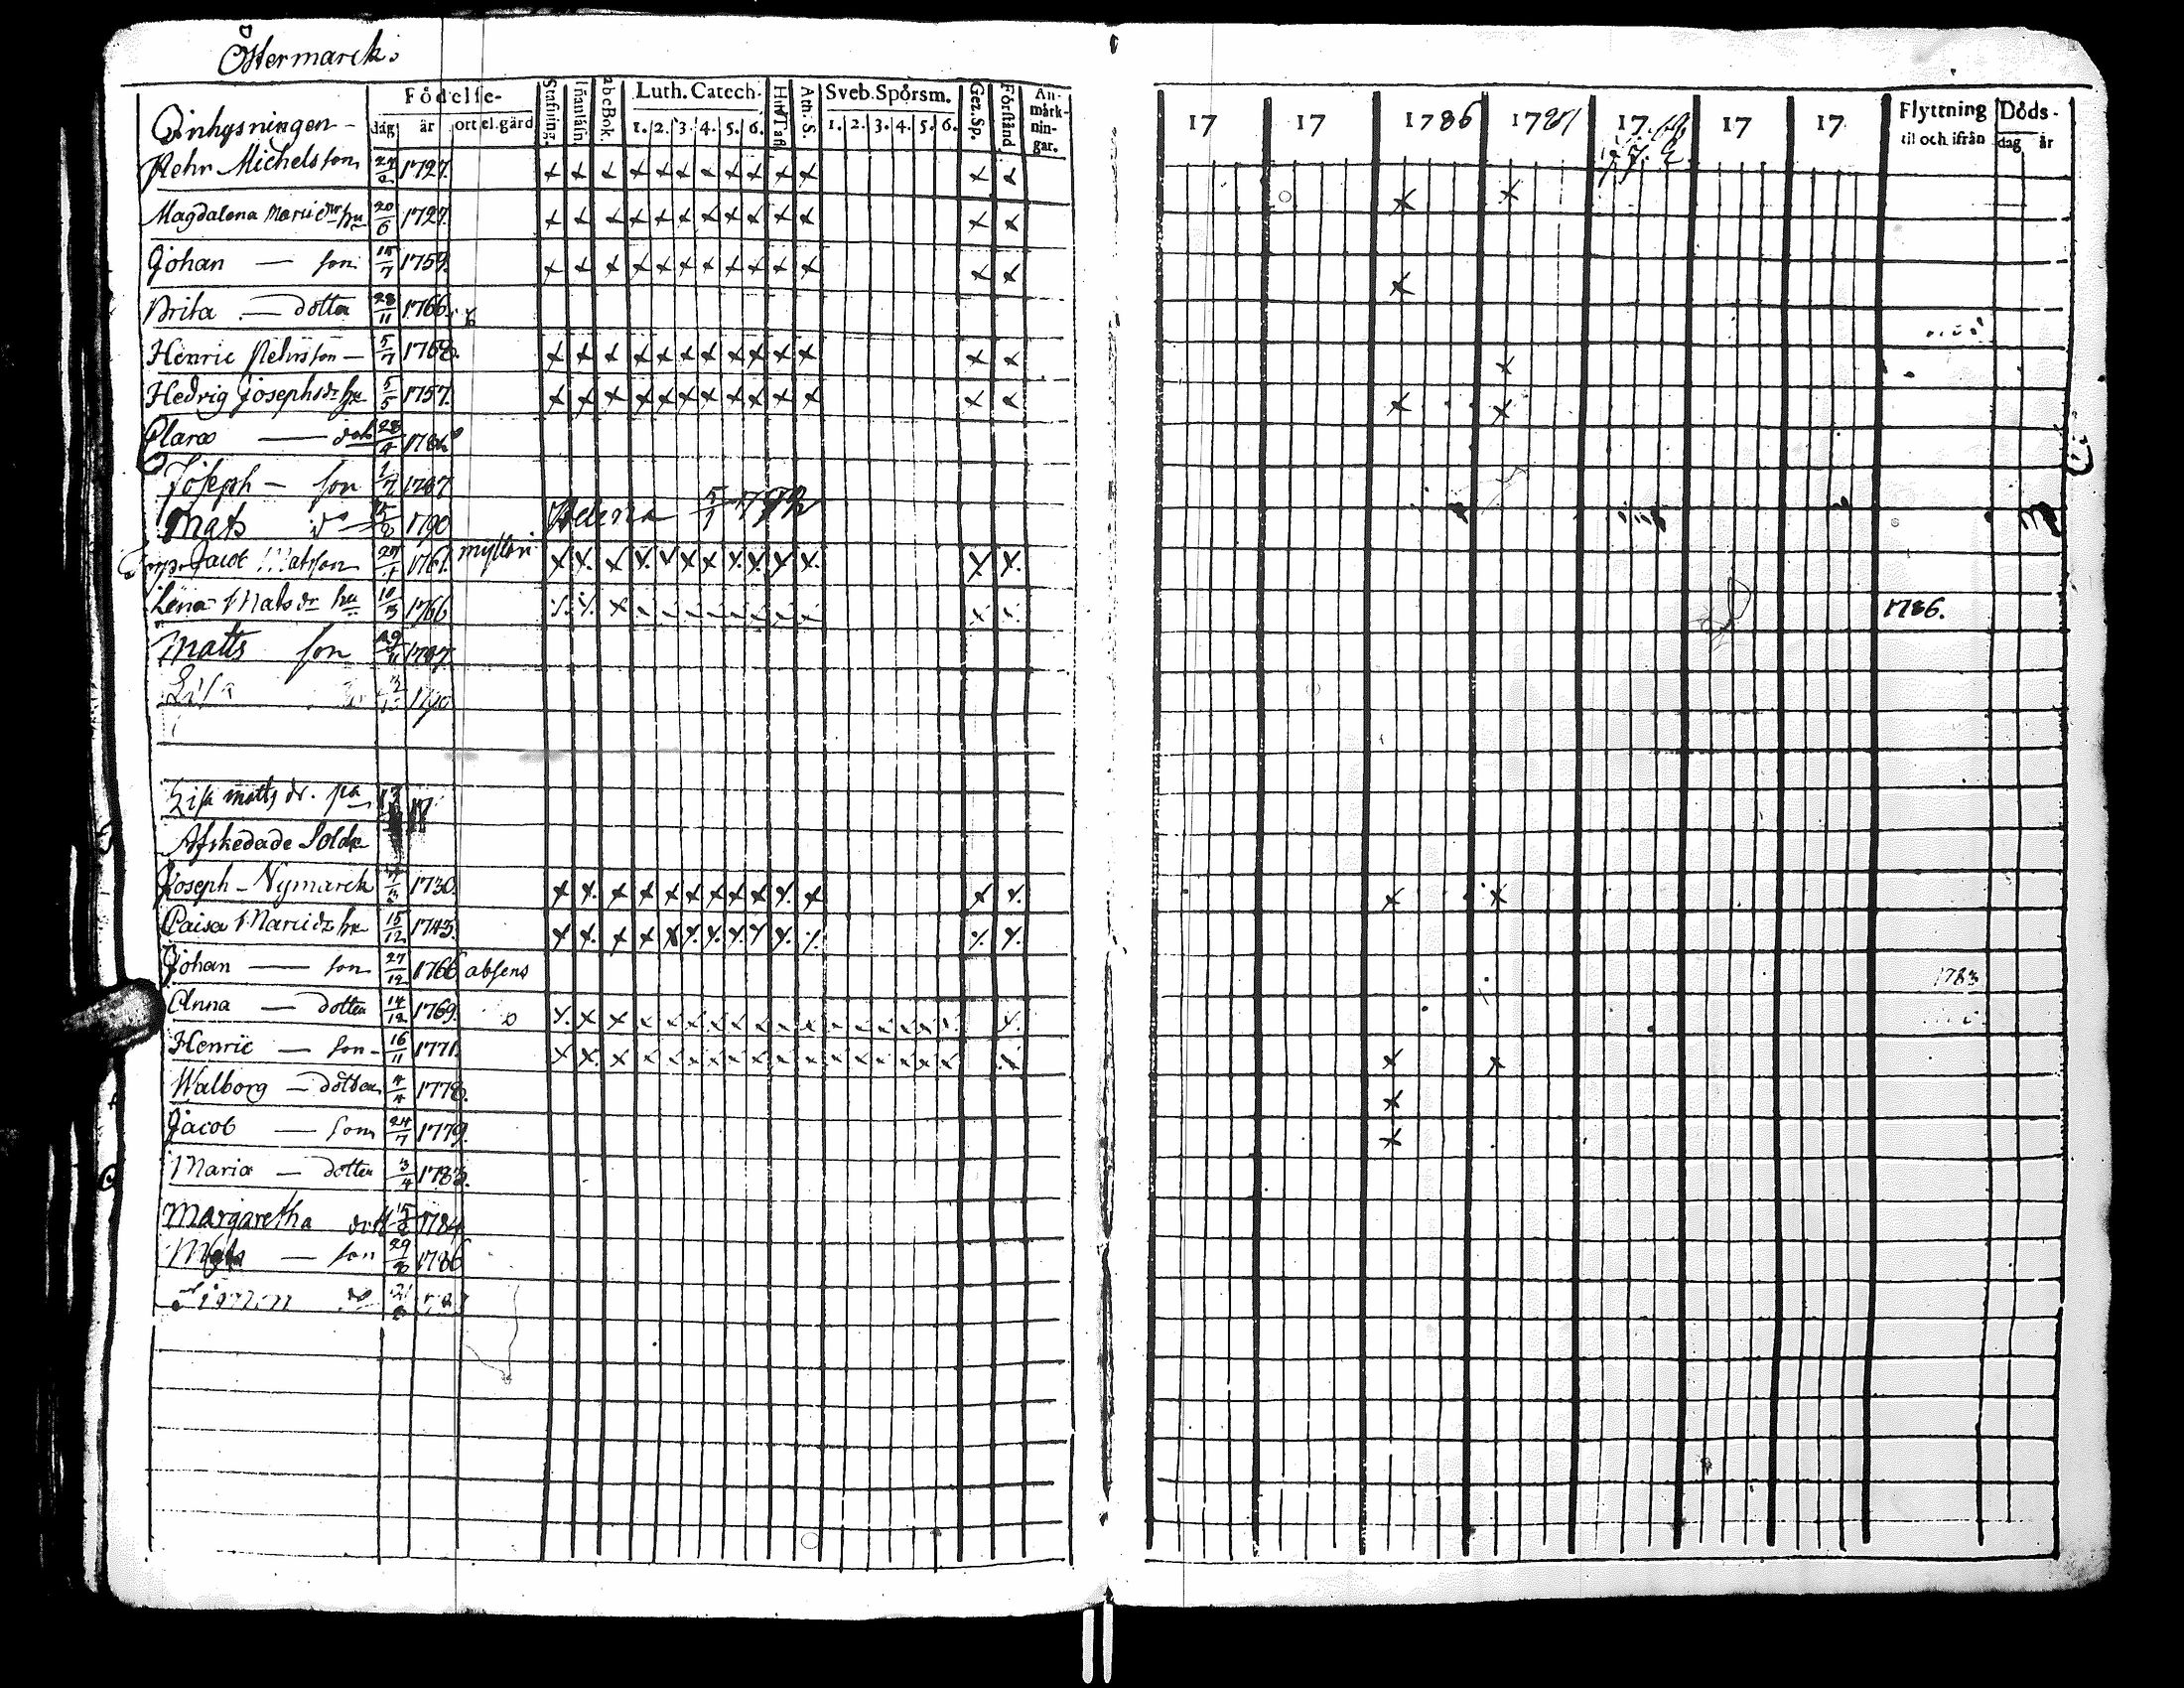 Östermarck.
Födelse- Stafning. Innanläsn. abcBok. Luth. Catech. Hus Tafl. Ath. S. Sveb. Spörsm. Gez. Sp. Förstånd An-märk-nin-gar.
dag år ort el. gård 1. 2. 3. 4. 5. 6. 1. 2. 3. 4. 5. 6.
17 17 1786 1787 17 17 17 Flyttning til och ifrån Döds- dag år
Inhysningen
Pehr Michelsson 27/2 1727.
Magdalena Mariædr hu 20/6 1727.
Johan — son 15/7 1759.
Brita — dotter 28/11 1766.
Henric Pehrsson — 5/7 1768.
Hedvig Josephsdr hu 5/5 1757.
Clara — dotr 28/9 1786
Joseph — son 1/7 1787
Mats do 1790 Helena 5/1 1792
Jacob Matsson 27 1761.
Lena Matsdr hu 10/3 1766 1786.
Matts son 29/11 1787
Lisa 1790
Lisa matts dr. på 13 17
Afskedade Soldr
Joseph Nymarck 1730.
Caisa Mariædr hu 15/12 1743.
Johan — son 27/12 1766 absens 1783
Anna — dotter 14/12 1769.
Henric — son 16/11 1771.
Walborg — dotter 4/4 1778.
Jacob — son 24/7 1779.
Maria — dotter 3/4 1783.
Margaretha dott 1784
Mats — son 29/8 1786
Simon do